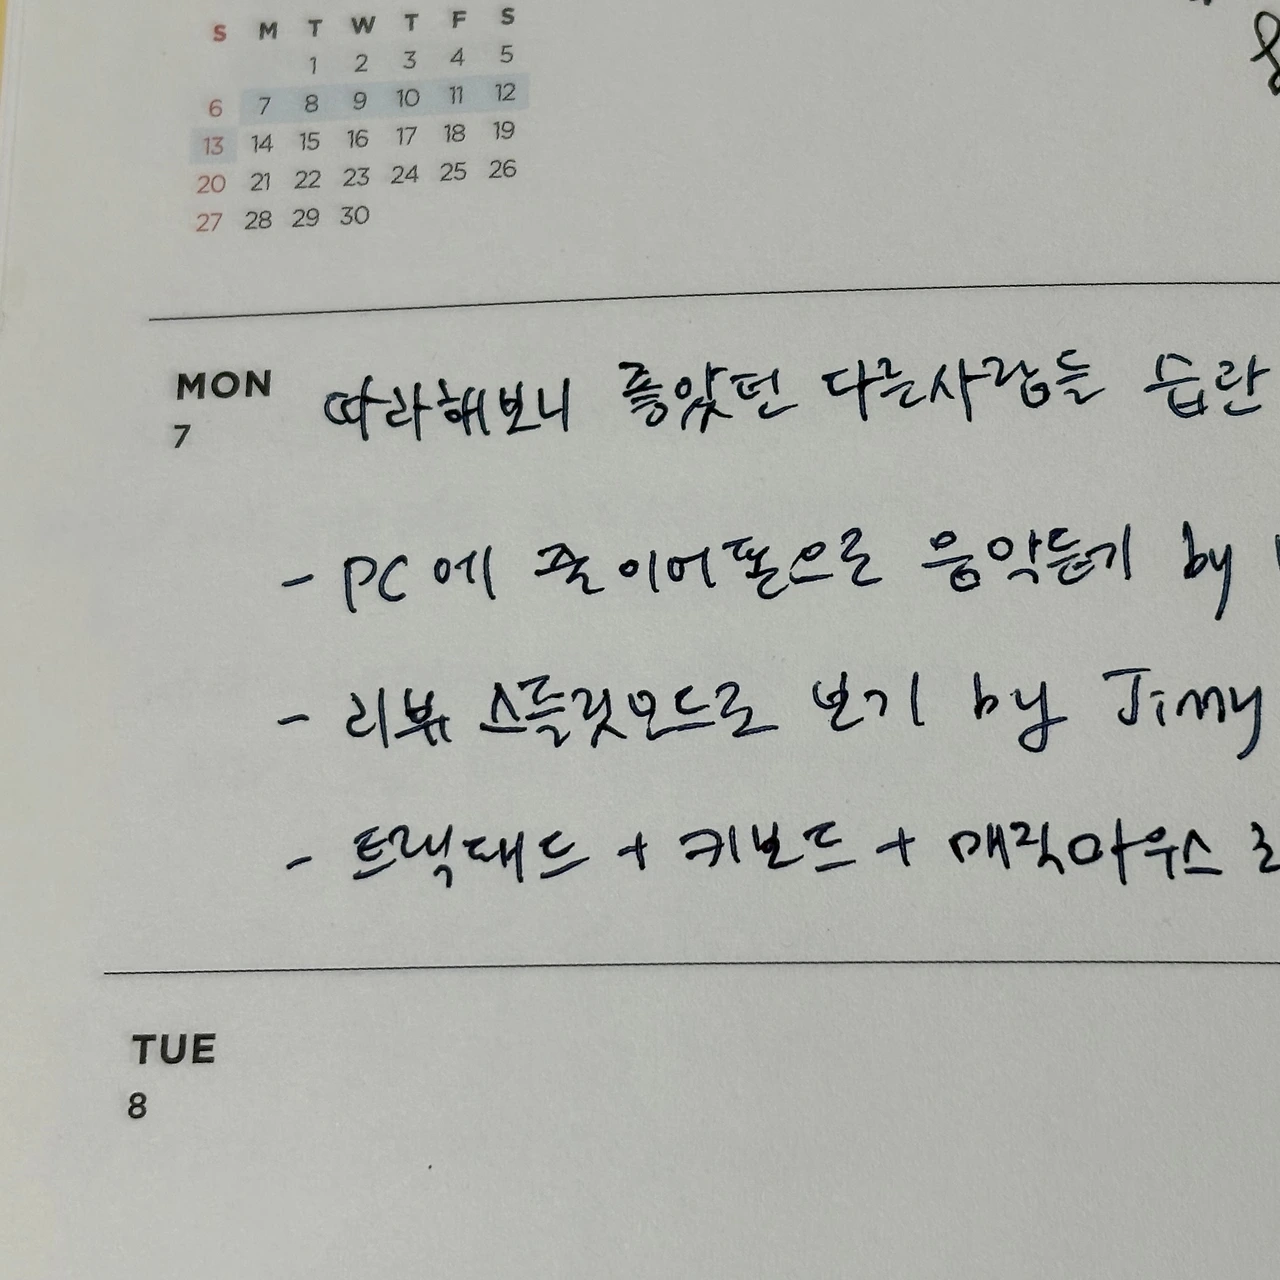 S M T W T F S
1 2 3 4 5
6 7 8 9 10 11 12
13 14 15 16 17 18 19
20 21 22 23 24 25 26
27 28 29 30
MON 따라해보니 좋았던 다른사람들 습관
7
- PC에 줄이어폰으로 음악듣기 by
- 리뷰 스플릿모드로 보기 by Jimmy
- 트랙패드 + 키보드 + 매직마우스
TUE
8